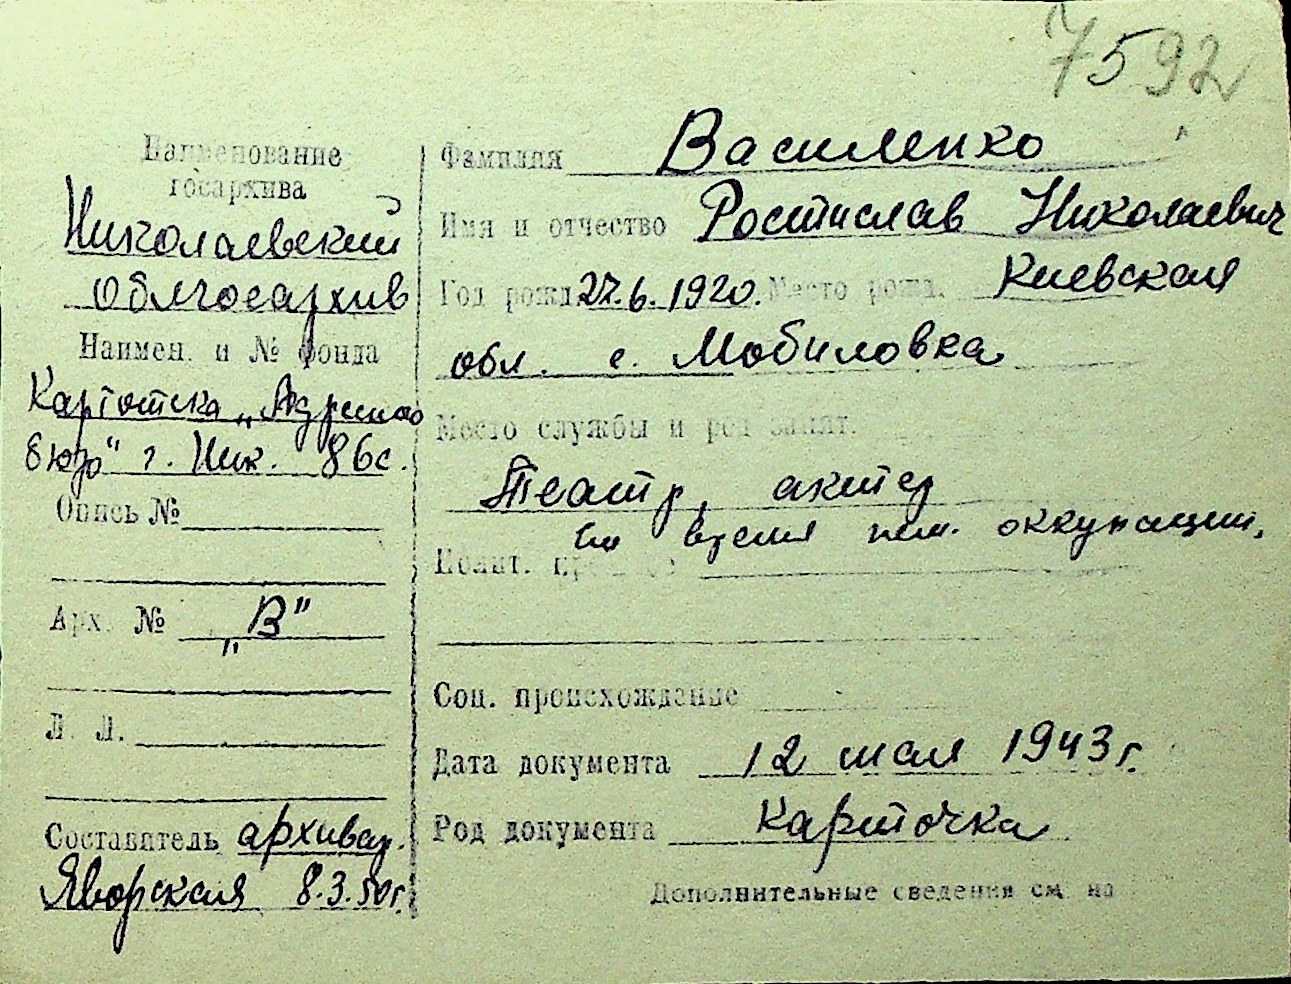 7592
Наименование
госархива
Николаевский
облгосархив
Наимен. и № фонда
Картотека „Адресного
бюро" г. Ник. 86с.
Опись №
Арх. № „В"
Л. Л.
Составитель архивар.
Яворская 8.3.50г.
Фамилия Василенко
Имя и отчество Ростислав Николаевич
Год рожд. 27.6.1920. Место рожд. Киевская
обл. с. Мобиловка
Место службы и род занят.
Театр, актер
время нем. оккупации.
Полит.
Соц. происхождение
Дата документа 12 мая 1943 г.
Род документа карточка
Дополнительные сведения см. на